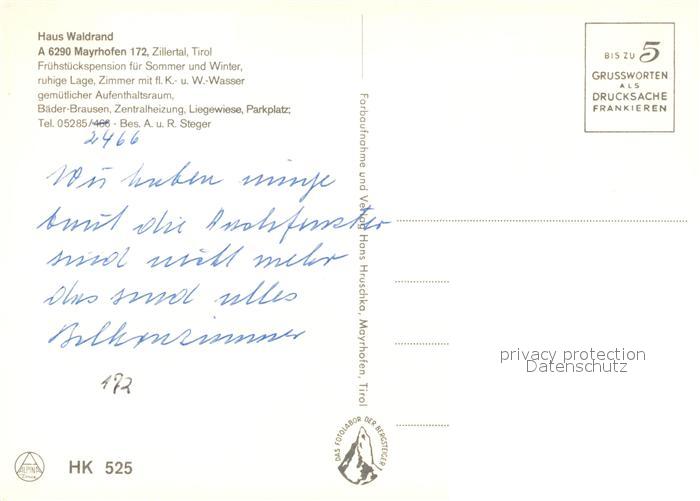 Haus Waldrand
A 6290 Mayrhofen 172, Zillertal, Tirol
Frühstückspension für Sommer und Winter,
ruhige Lage, Zimmer mit fl. K.- u. W.-Wasser
gemütlicher Aufenthaltsraum,
Bäder-Brausen, Zentralheizung, Liegewiese, Parkplatz;
Tel. 05285/466 - Bes. A. u. R. Steger
2466
Wir haben
baut die Dachfenster
sind nicht mehr
das sind alles
Balkonzimmer
172
ALPINA
HK 525
Farbaufnahme und Verlag Hans Hruschka, Mayrhofen, Tirol
DAS FOTOLABOR DER BERGSTEIGER
BIS ZU 5
GRUSSWORTEN
ALS
DRUCKSACHE
FRANKIEREN
privacy protection
Datenschutz